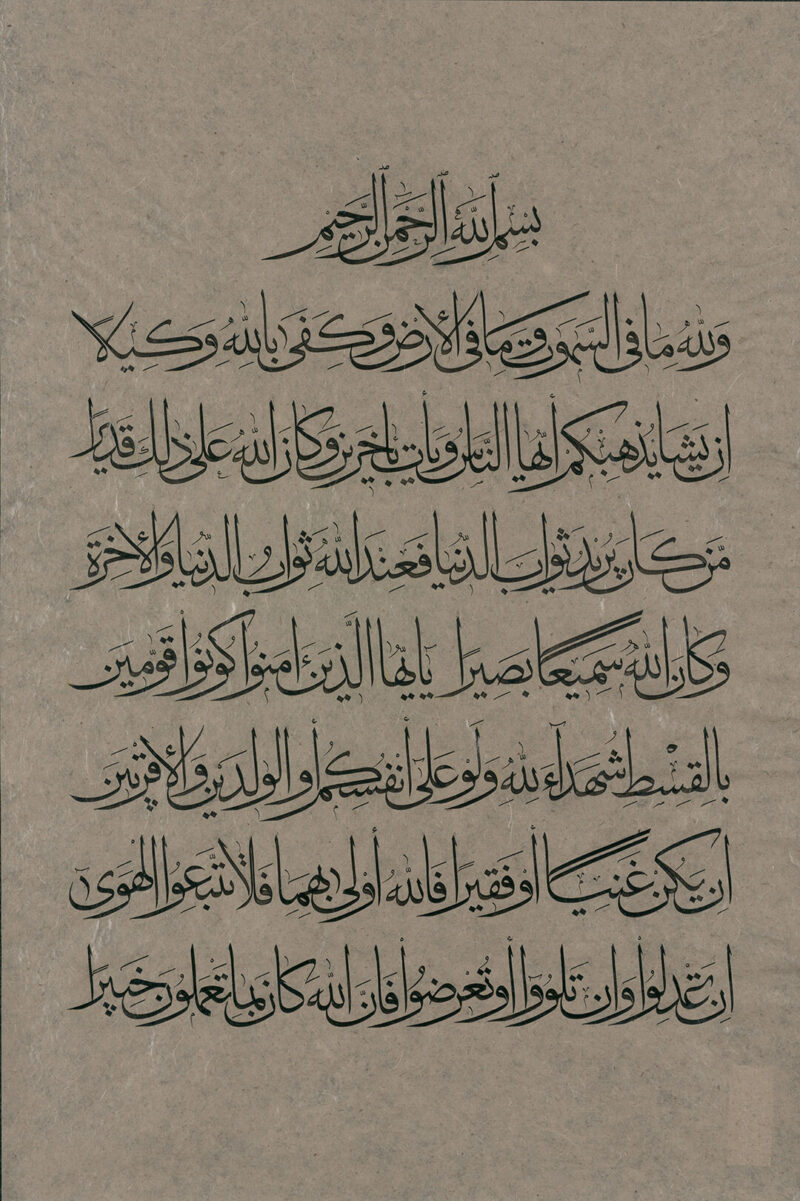 بسم الله الرحمن الرحيم
ولله ما في السموت وما في الأرض وكفى بالله وكيلا
إن يشأ يذهبكم أيها الناس ويأت بآخرين وكان الله على ذلك قديرا
من كان يريد ثواب الدنيا فعند الله ثواب الدنيا والأخرة
وكان الله سميعا بصيرا يايها الذين ءامنوا كونوا قومين
بالقسط شهدآء لله ولو على أنفسكم أو الولدين والأقربين
إن يكن غنيا أو فقيرا فالله أولى بهما فلا تتبعوا الهوى
أن تعدلوا وإن تلووا أو تعرضوا فإن الله كان بما تعملون خبيرا